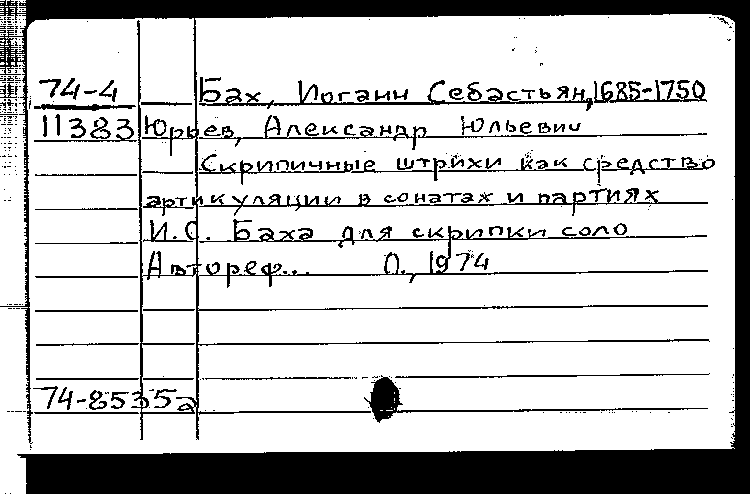 74-4 Бах, Иоганн Себастьян, 1685-1750
11383 Юрьев, Александр Юльевич
Скрипичные штрихи как средство
артикуляции в сонатах и партиях
И.С. Баха для скрипки соло
Автореф... Л., 1974
74-8535а